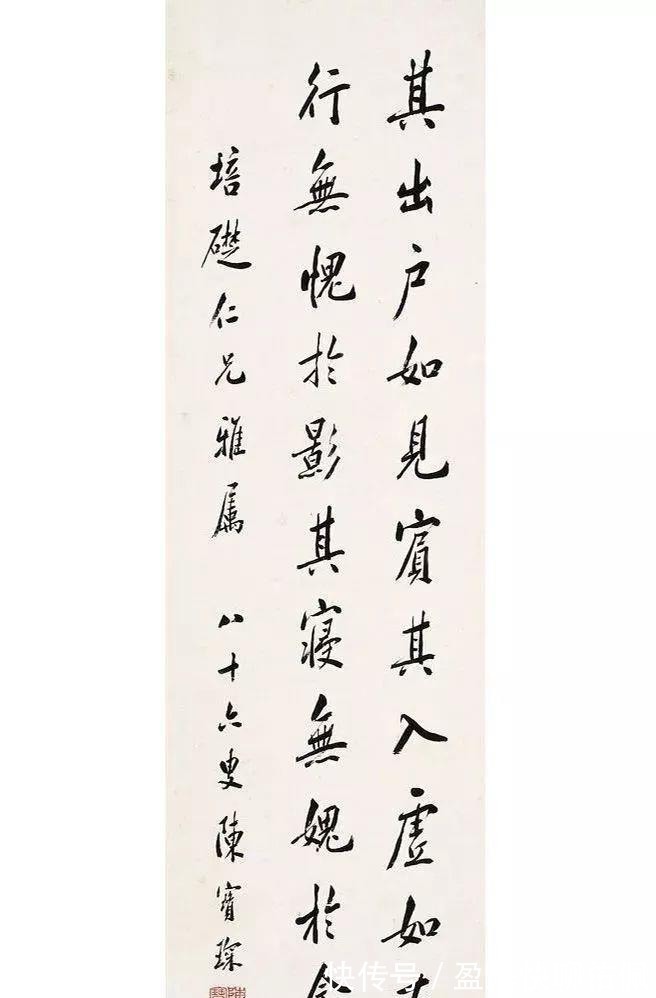 其出户如見賓其入虛如
行無愧於影其寢無媿於
培礎仁兄雅属 八十六叟陳寶琛
快传号/盈